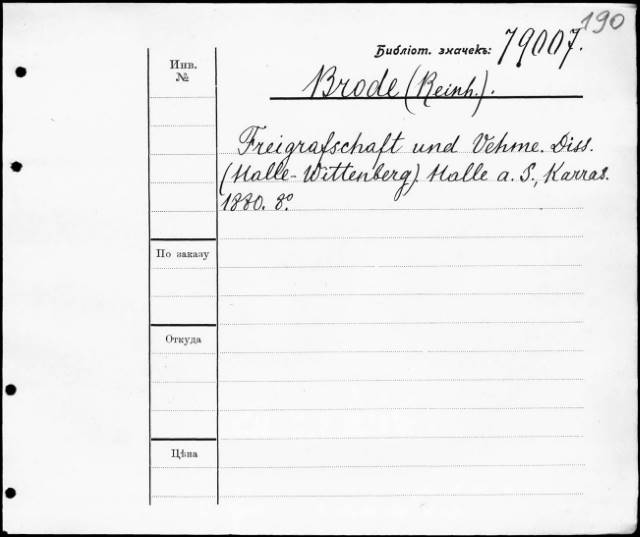 190
Библіот. значекъ: 79007.
Инв.
№
Brode (Reinh.).
Freigrafschaft und Vehme. Diss.
(Halle-Wittenberg). Halle a. S., Karras.
1880. 8°.
По заказу
Откуда
Цѣна